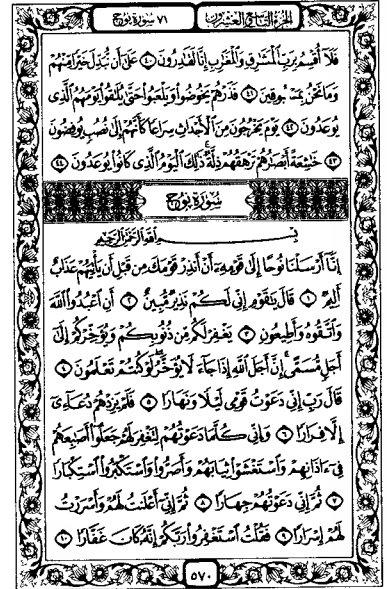 ٧١ سورة نوح
الجزء التاسع والعشرون
فَلَا أُقْسِمُ بِرَبِّ الْمَشَارِقِ وَالْمَغَارِبِ إِنَّا لَقَادِرُونَ ٤٠ عَلَىٰ أَن نُّبَدِّلَ خَيْرًا مِّنْهُمْ
وَمَا نَحْنُ بِمَسْبُوقِينَ ٤١ فَذَرْهُمْ يَخُوضُوا وَيَلْعَبُوا حَتَّىٰ يُلَاقُوا يَوْمَهُمُ الَّذِي
يُوعَدُونَ ٤٢ يَوْمَ يَخْرُجُونَ مِنَ الْأَجْدَاثِ سِرَاعًا كَأَنَّهُمْ إِلَىٰ نُصُبٍ يُوفِضُونَ
٤٣ خَاشِعَةً أَبْصَارُهُمْ تَرْهَقُهُمْ ذِلَّةٌ ذَٰلِكَ الْيَوْمُ الَّذِي كَانُوا يُوعَدُونَ ٤٤
سُورَةُ نُوحٍ
بِسْمِ اللَّهِ الرَّحْمَٰنِ الرَّحِيمِ
إِنَّا أَرْسَلْنَا نُوحًا إِلَىٰ قَوْمِهِ أَنْ أَنذِرْ قَوْمَكَ مِن قَبْلِ أَن يَأْتِيَهُمْ عَذَابٌ
أَلِيمٌ ١ قَالَ يَا قَوْمِ إِنِّي لَكُمْ نَذِيرٌ مُّبِينٌ ٢ أَنِ اعْبُدُوا اللَّهَ
وَاتَّقُوهُ وَأَطِيعُونِ ٣ يَغْفِرْ لَكُم مِّن ذُنُوبِكُمْ وَيُؤَخِّرْكُمْ إِلَىٰ
أَجَلٍ مُّسَمًّى إِنَّ أَجَلَ اللَّهِ إِذَا جَاءَ لَا يُؤَخَّرُ لَوْ كُنتُمْ تَعْلَمُونَ ٤
قَالَ رَبِّ إِنِّي دَعَوْتُ قَوْمِي لَيْلًا وَنَهَارًا ٥ فَلَمْ يَزِدْهُمْ دُعَاءِي
إِلَّا فِرَارًا ٦ وَإِنِّي كُلَّمَا دَعَوْتُهُمْ لِتَغْفِرَ لَهُمْ جَعَلُوا أَصَابِعَهُمْ
فِي آذَانِهِمْ وَاسْتَغْشَوْا ثِيَابَهُمْ وَأَصَرُّوا وَاسْتَكْبَرُوا اسْتِكْبَارًا
٧ ثُمَّ إِنِّي دَعَوْتُهُمْ جِهَارًا ٨ ثُمَّ إِنِّي أَعْلَنتُ لَهُمْ وَأَسْرَرْتُ
لَهُمْ إِسْرَارًا ٩ فَقُلْتُ اسْتَغْفِرُوا رَبَّكُمْ إِنَّهُ كَانَ غَفَّارًا ١٠
٥٧٠